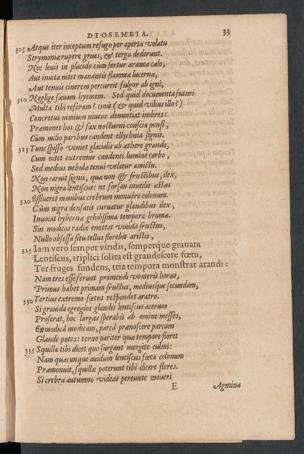 DIOSEMEIA. 33
305 Atque iter inceptum refugo per aperta volatu
Strymoniæ rupere grues, & terga dederunt.
Nec leuis in placido cùm fertur aranea cælo,
Aut inuita nitet manantis flamma lucernæ,
Aut tenui cinerem percurrit fulgor ab igni,
310 Neglige sæuam hyemem. Sed quid documenta futuri
Multa tibi referam? cinis (& quid vilius illo?)
Concretus nimium niueos denuntiat imbres:
Præmonet hos & fax nocturni conscia pensi,
Cùm milio paribus candent ellychnia signis.
315 Tunc spisso veniet glacialis ab æthere grando,
Cùm nitet extremus candenti lumine carbo,
Sed medius nebula tenui velatur amictu.
Non caruit signis, qua non & fructibus, ilex,
Non nigra lentiscus: ne forsan inutilis æstas
320 Efflueret manibus crebrum monuere colonum.
Cùm nigra densatis curuatur glandibus ilex,
Inuocat hyberna gelidissima tempora brumæ.
Sin modicos radio emittat viuida fructus,
Nullo obsessa situ tellus florebit aristis,
325 Iam verò semper viridis, sempérque grauata
Lentiscus, triplici solita est grandescere fœtu,
Ter fruges fundens, tria tempora monstrat arandi:
Nam tres esse ferunt promendi vomeris horas,
Primus habet primam fructus, mediúsque secundam,
330 Tertius extremo fœtus respondet aratro.
Si grauida egregios glandis lentiscus aceruos
Proferat, hoc largas sperabis ab omine messes,
Et modicâ modicam, parcâ præmoscere parcam
Glande potes: terno pariter qua tempore floret
335 Squilla tibi dicet quo surgant mergite culmi:
Nam quæcunque auidam lentiscus fœta colonum
Præmonuit, squilla poterunt tibi dicere flores.
Si crebra autumno videas pereunte moueri
E Agmina